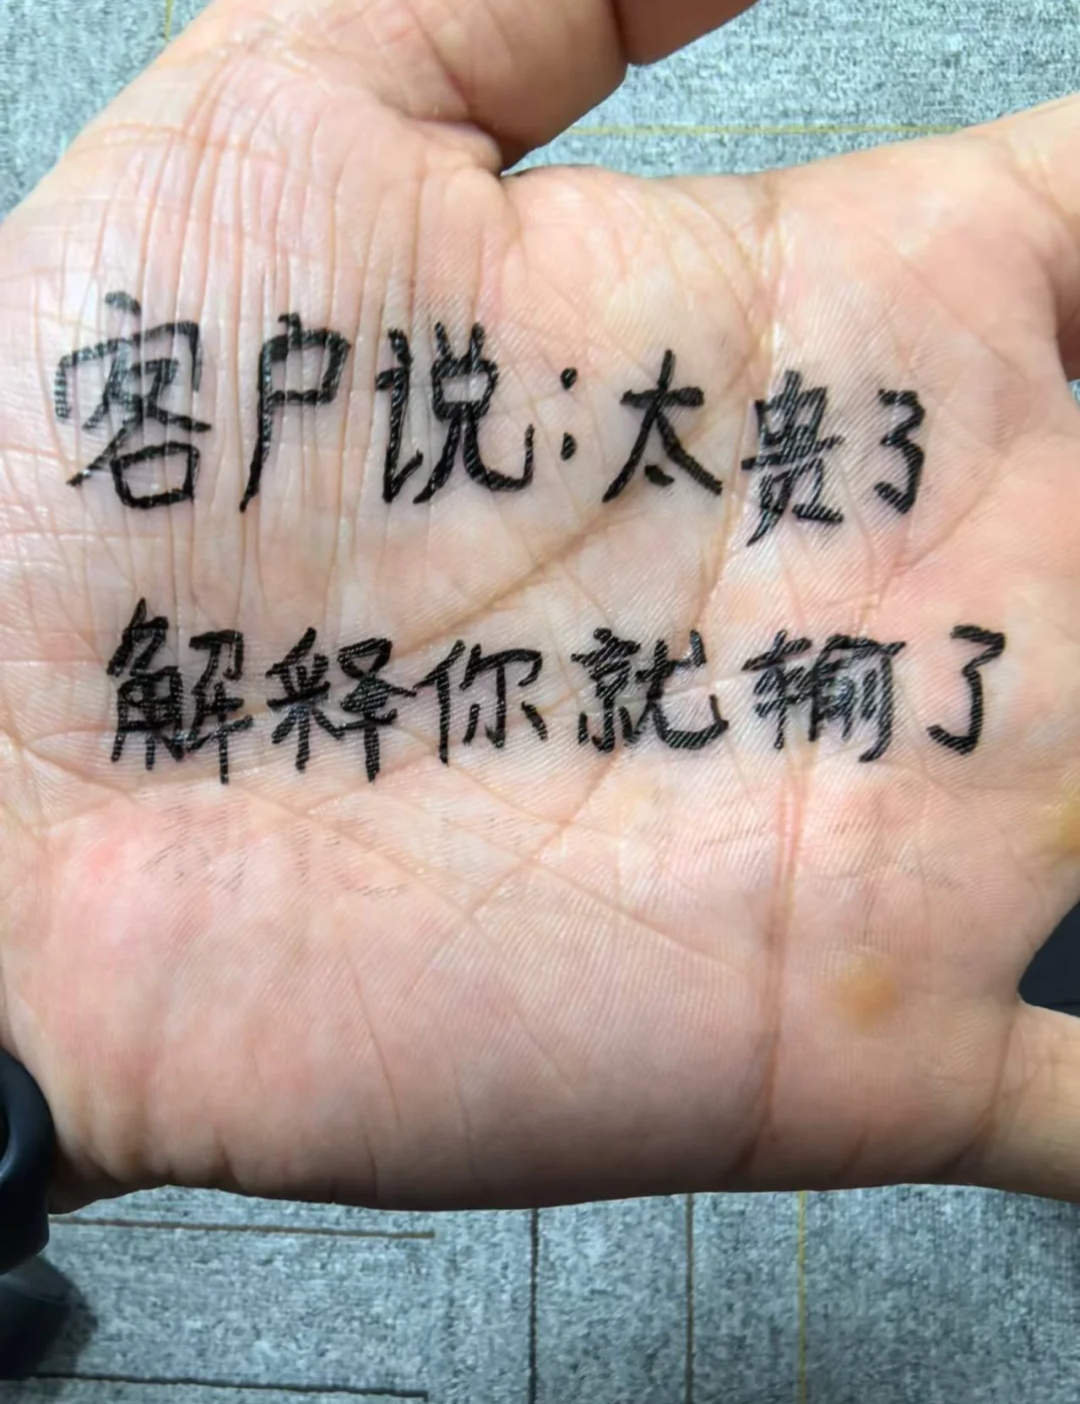 客户说:太贵了
解释你就输了